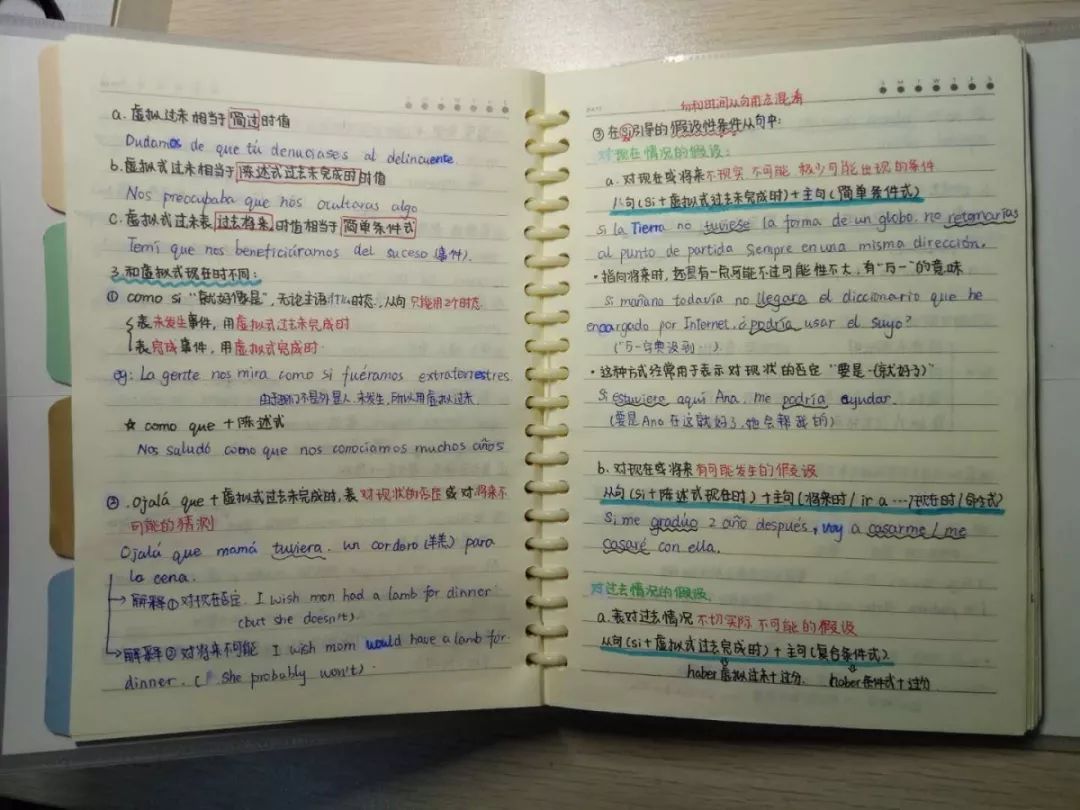 a. 虚拟过未相当于简过时值
Dudamos de que tú denunciases al delincuente
b. 虚拟式过未相当于陈述式过去未完成时时值
Nos preocupaba que nos ocultaras algo
C. 虚拟式过未表过去将来时值相当于简单条件式
Temí que nos beneficiáramos del suceso (事件).
3. 和虚拟式现在时不同:
① como si "就好像是", 无论主语什么时态, 从句只能用2个时态
表未发生事件, 用虚拟式过去未完成时
表完成事件, 用虚拟式完成时.
eg: La gente nos mira como si fuéramos extraterrestres.
由于我们不是外星人, 未发生, 所以用虚拟过未
☆ como que + 陈述式
Nos saludó como que nos conocíamos muchos años
② . Ojalá que + 虚拟式过去未完成时, 表对现状的否定或对将来不
可能的猜测
Ojalá que mamá tuviera un cordero (羊羔) para
la cena.
→ 解释① 对现在否定. I wish mon had a lamb for dinner
(but she doesn't).
→ 解释② 对将来不可能 I wish mom would have a lamb for
dinner. ( she probably won't).
句和时间从句用点混着
③ 在si引导的假设性条件从句中:
对现在情况的假设:
a. 对现在或将来不现实 不可能 极少可能出现的条件
从句(Si+虚拟式过去未完成时)+主句(简单条件式)
si la Tierra no tuviese la forma de un globo, no retornarías
al punto de partida siempre en una misma dirección.
· 指向将来时, 还是有一点可能不过可能性不大, 有"万一"的意味
Si mañana todavía no llegara el diccionario que he
engargado por Internet, ¿podría usar el suyo?
("万一字典没到…).
· 这种方式经常用于表示对现状的否定 "要是…(就好了)"
Si estuviere aquí Ana, me podría ayudar.
(要是Ana在这就好了, 她会帮我的)
b. 对现在或将来有可能发生的假设
从句(Si+陈述式现在时)+主句(将来时/ir a …/现在时/命令式)
Si me gradúo 2 año después, voy a casarme / me
casaré con ella.
对过去情况的假设
a. 表对过去情况 不切实际 不可能的假设
从句(si+虚拟式过去完成时)+主句(复合条件式).
haber虚拟过未+过分. haber条件式+过分